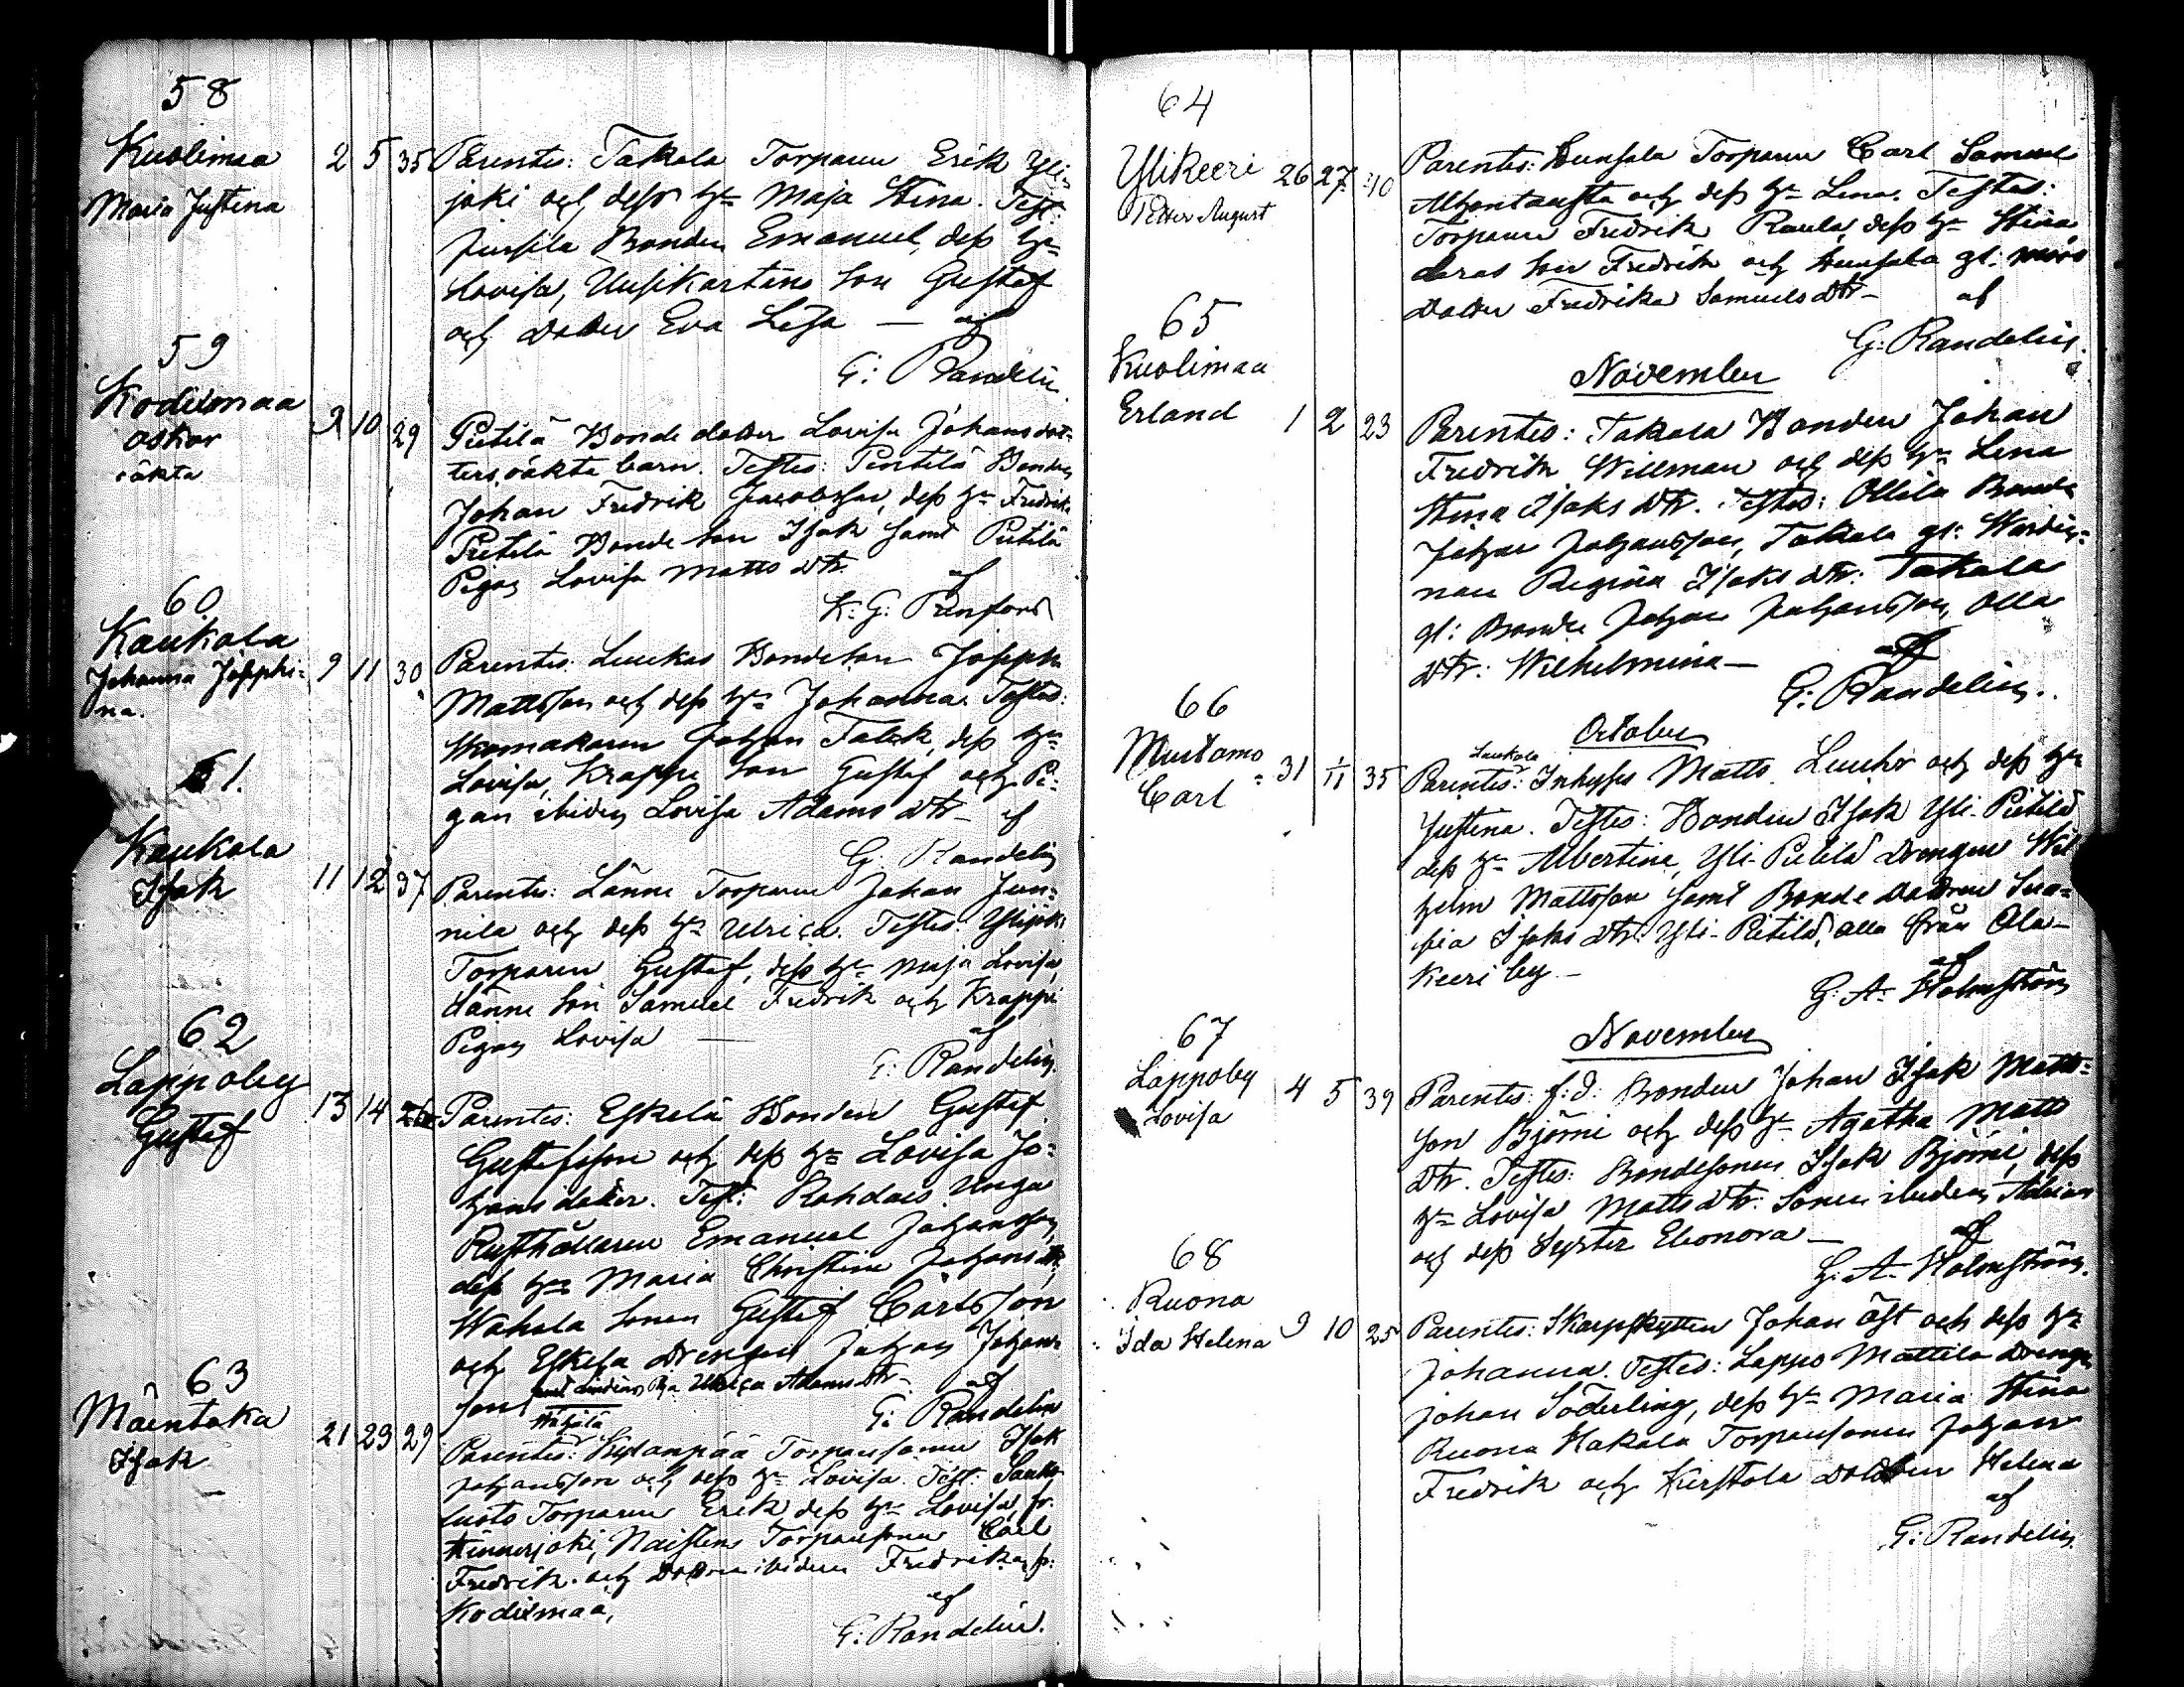 58
Kuolimaa 2 5 35 Parentes: Takala Torparen Erik Yli-
Maria Justina joki och dess h:u Maja Stina. Test:
Jussila Bonden Emanuel, dess h:u
Lovisa, Uusikartano Son Gustaf
och Dotter Eva Lisa — af
G: Randelin
59
Kodiksmaa 9 10 29 Pietilä Bonde dotter Lovisa Johansdot-
Oskar ters oäkta barn. Testes: Penttilä Bonden
oäkta Johan Fredrik Jacobsson, dess h:u Fredrika
Pietilä Bonde Son Isak samt Pietilä
Pigan Lovisa Matts dtr. af
K: G: Renfors
60
Kaukola 9 11 30 Parentes: Luukas Bondeson Joseph
Johanna Josephi- Mattsson och dess h:u Johanna. Testes:
na. Skomakaren Johan Talck, dess h:u
Lovisa, Krappe Son Gustaf och Pi-
gan ibidem Lovisa Adams dtr — af
G. Randelin
61.
Kaukola 11 12 37 Parentes: Länne Torparen Johan Jun-
Isak nila och dess h:u Ulrica. Testes: Ylijoki
Torparen Gustaf, dess h:u Maja Lovisa,
Länne Son Samuel Fredrik och Krappe
Pigan Lovisa — af
G. Randelin
62
Lappoby 13 14 26 Parentes: Eskelä Bonden Gustaf
Gustaf Gustafsson och dess h:u Lovisa Jo-
hans dotter. Test: Rohdais Unga
Rusthållaren Emanuel Johansson,
dess h:u Maria Christina Johans dtr,
Wahala Sonen Gustaf Carlsson
och Eskelä Drengen Johan Johans
son samt ibidem Pia Ulrica Adams dtr — af
G: Randelin
63
Mäentaka 21 23 29 Parentes: Torparesonen Isak
Isak Johansson och dess h:u Lovisa. Test:
Torparen Erik dess h:u Lovisa, fr.
Hinnerjoki, Naistens Torparesonen Carl
Fredrik och Dottren ibidem Fredrika, fr:
Kodiksmaa, af
G: Randelin.
64
Ylikeeri 26 27 40 Parentes: Hunsala Torparen Carl Samuel
Petter August och dess h:u Lena. Testes:
Torparen Fredrik Raula, dess h:u Stina
deras Son Fredrik och Hunsala gl:
Dotter Fredrika Samuels dtr — af
G: Randelin.
November
65
Kuolimaa
Erland 1 2 23 Parentes: Takala Bonden Johan
Fredrik Willman och dess h:u Lena
Stina Isaks dtr. Testes: Ollila Bonde
Johan Johansson, Takala gl: Wärdin-
nan Regina Isaks dtr: Takala
gl: Bonde Johan Johansson, Olla
dtr: Wilhelmina — af
G: Randelin.
October
66
Mustamo 31 1/11 35 Parentes: Laukola Inhyses Matts Luuhr och dess h:u
Carl Justina. Testes: Bonden Isak Yli-Pietilä
dess h:u Albertina, Yli-Pietilä Drengen Wil
helm Mattsson samt Bonde Dottren Sera-
fia Isaks dtr: Yli-Pietilä, alla från Ala-
keeri by — af
G: A. Holmström
November
67
Lappoby 4 5 39 Parentes: f.d. Bonden Johan Isak Matts-
Lovisa son Björni och dess h:u Agatha Matts
dtr. Testes: Bondesonen Isak Björni, dess
h:u Lovisa Matts dtr: Sonen ibidem Adrian
och dess Syster Elionora — af
G: A. Holmström.
68
Ruona
Ida Helena 9 10 25 Parentes: Skarpskytten Johan Öst och dess h:u
Johanna. Testes: Lappo Mattila Drengen
Johan Söderling, dess h:u Maria Stina
Ruona Hakala Torparesonen Johan
Fredrik och Kirstola Dottren Helena
af
G: Randelin.